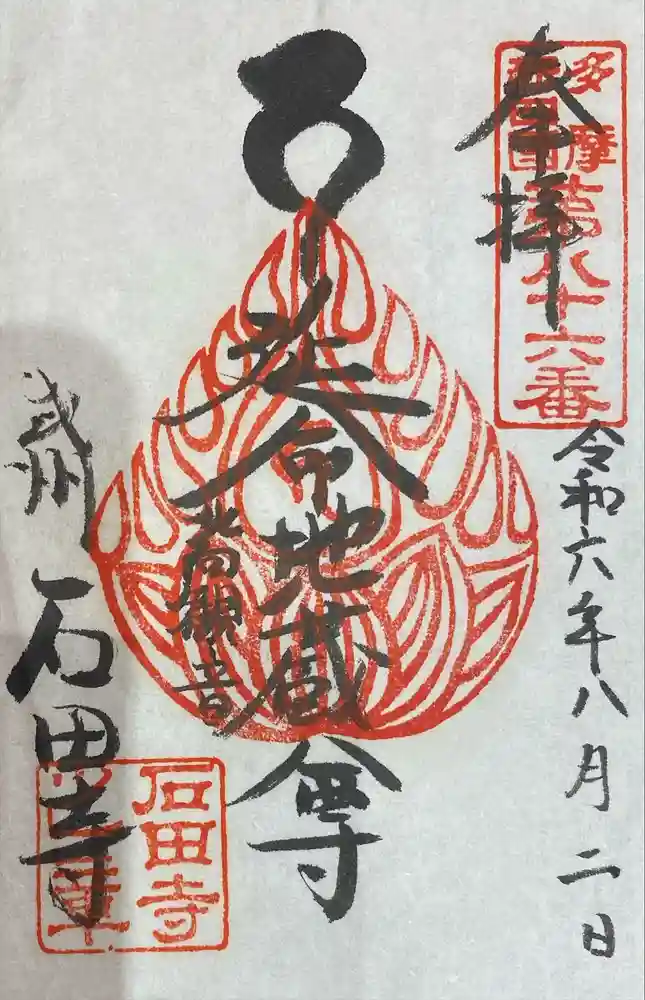 奉拝
多摩
四国
第八十六番
令和六年八月二日
延命地蔵尊
観音
武州
石田寺
石田寺